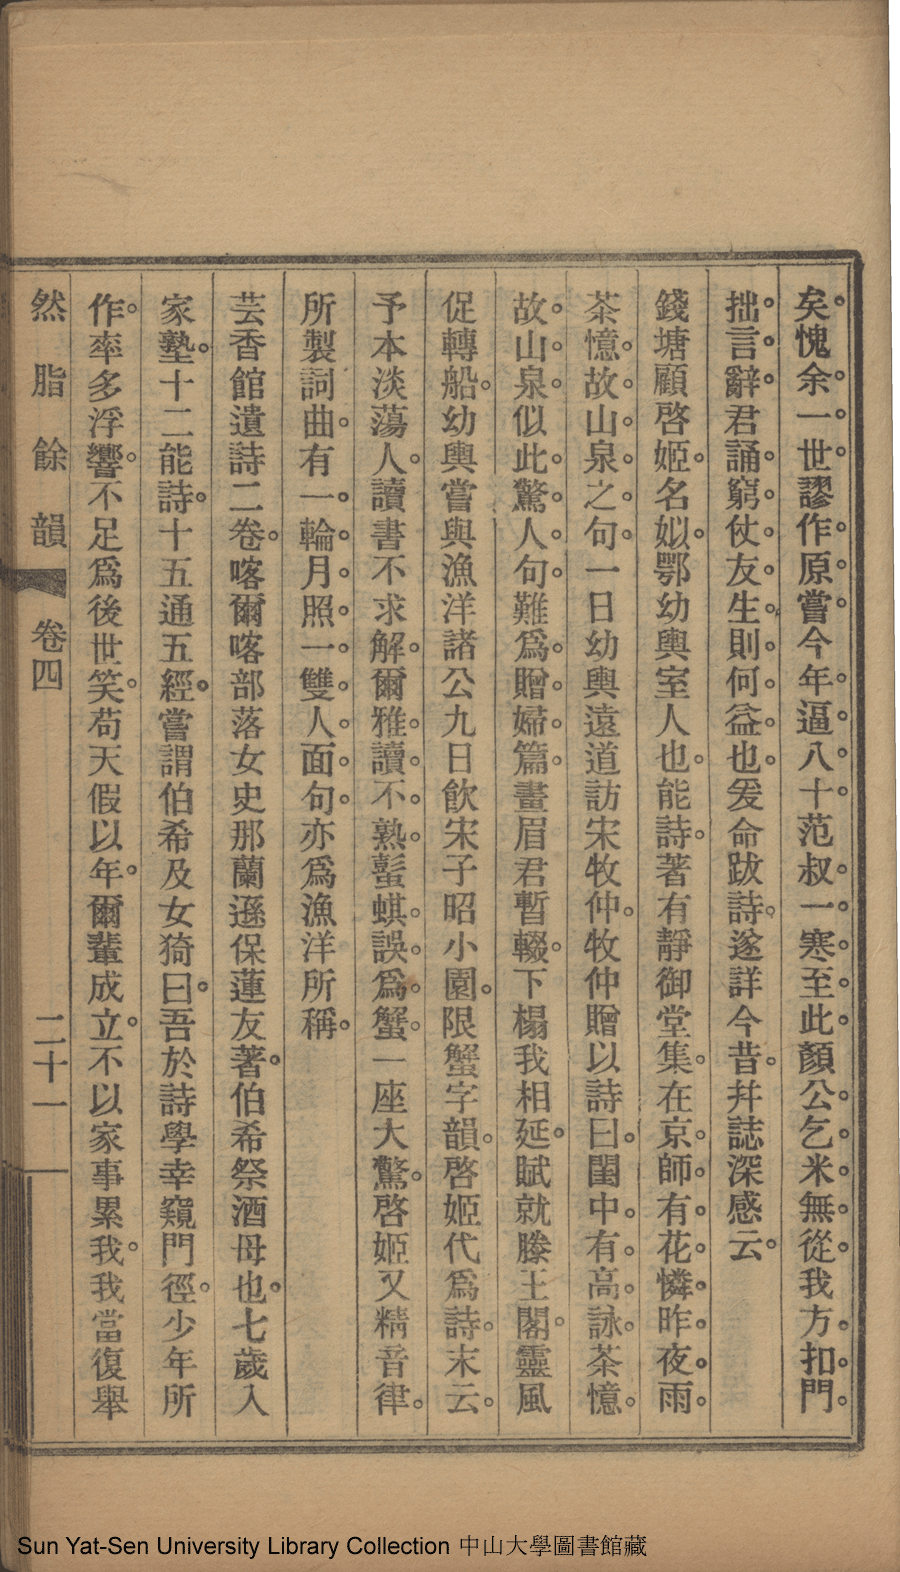 矣愧余一世謬作原嘗今年逼八十范叔一寒至此顏公乞米無從我方扣門
拙言辭君誦窮伏友生則何益也爰命跋詩遂詳今昔幷誌深感云
錢塘顧啓姬名姒鄂幼輿室人也能詩著有靜御堂集在京師有花憐昨夜雨
茶憶故山泉之句一日幼輿遠道訪宋牧仲牧仲贈以詩曰閨中有高詠茶憶
故山泉似此驚人句難爲贈婦篇畫眉君暫輟下榻我相延賦就滕王閣靈風
促轉船幼輿嘗與漁洋諸公九日飲宋子昭小園限蟹字韻啓姬代爲詩末云
予本淡蕩人讀書不求解爾雅讀不熟蟚蜞誤爲蟹一座大驚啓姬又精音律
所製詞曲有一輪月照一雙人面句亦爲漁洋所稱
芸香館遺詩二卷喀爾喀部落女史那蘭遜保蓮友著伯希祭酒母也七歲入
家塾十二能詩十五通五經嘗謂伯希及女猗曰吾於詩學幸窺門徑少年所
作率多浮響不足爲後世笑苟天假以年爾輩成立不以家事累我我當復舉
然脂餘韻 卷四 二十一
Sun Yat-Sen University Library Collection 中山大學圖書館藏